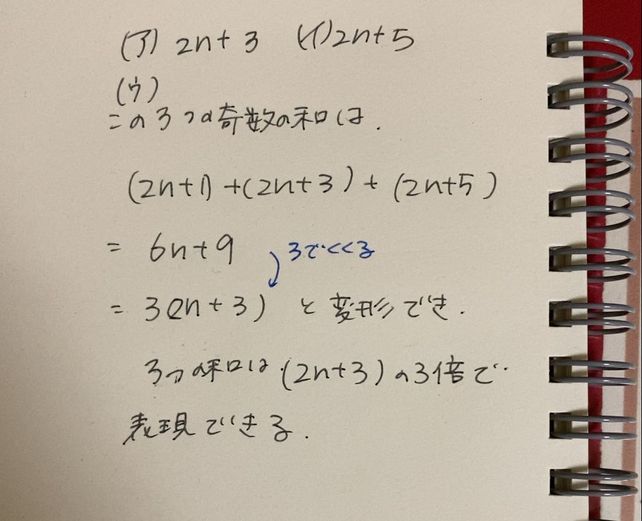 (ア) 2n+3 (イ) 2n+5
(ウ)
この3つの奇数の和は.
(2n+1)+(2n+3)+(2n+5)
= 6n+9
3でくくる
= 3(2n+3) と変形でき.
3つの和は(2n+3)の3倍で
表現できる.